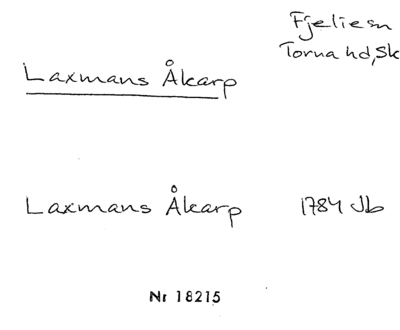 Fjelie sn
Torna hd, Sk
Laxmans Åkarp
Laxmans Åkarp 1784 Jb
Nr 18215